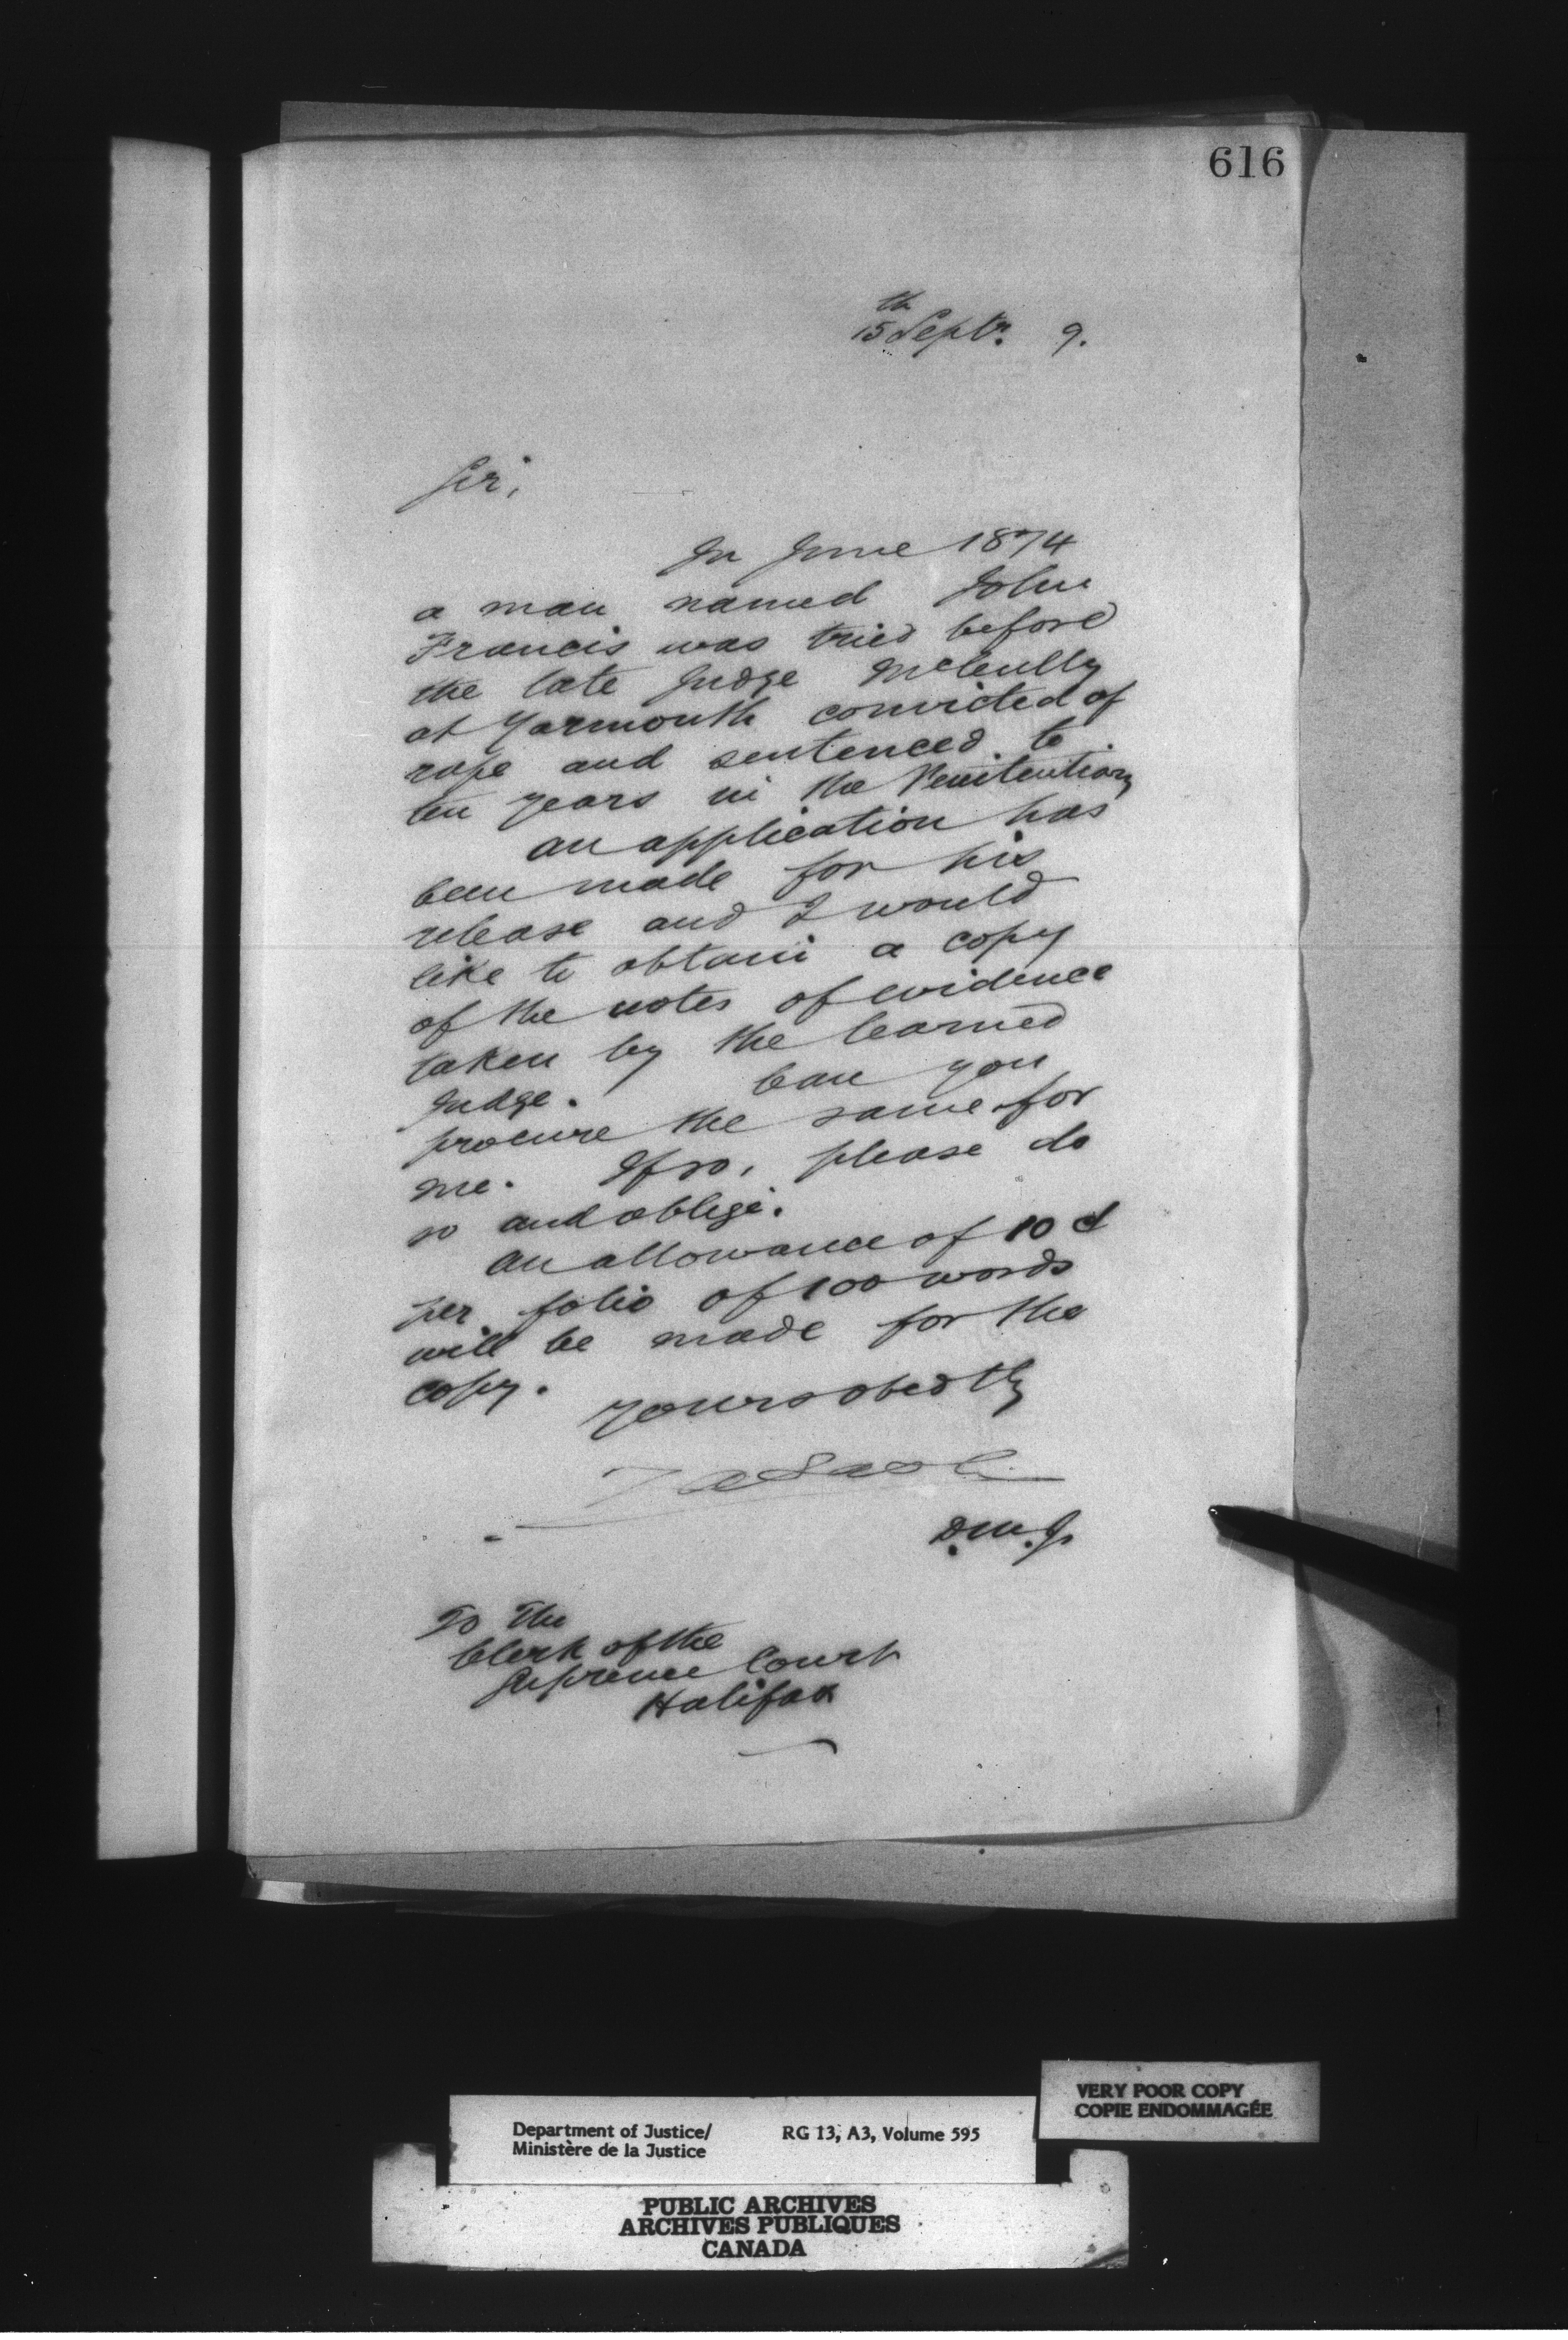 616
15th Septr. 9.
Sir,
In June 1874
a man named John
Francis was tried before
the late Judge McCully
at Yarmouth convicted of
rape and sentenced to
ten years in the Penitentiary
An application has
been made for his
release and I would
like to obtain a copy
of the notes of evidence
taken by the learned
Judge. Can you
procure the same for
me. If so, please do
so and oblige.
An allowance of 10 ¢
per folio of 100 words
will be made for the
copy.
Yours obedtly
D.M.J.
To The
Clerk of the
Supreme Court
Halifax
VERY POOR COPY
COPIE ENDOMMAGÉE
Department of Justice/ RG 13, A3, Volume 595
Ministère de la Justice
PUBLIC ARCHIVES
ARCHIVES PUBLIQUES
CANADA